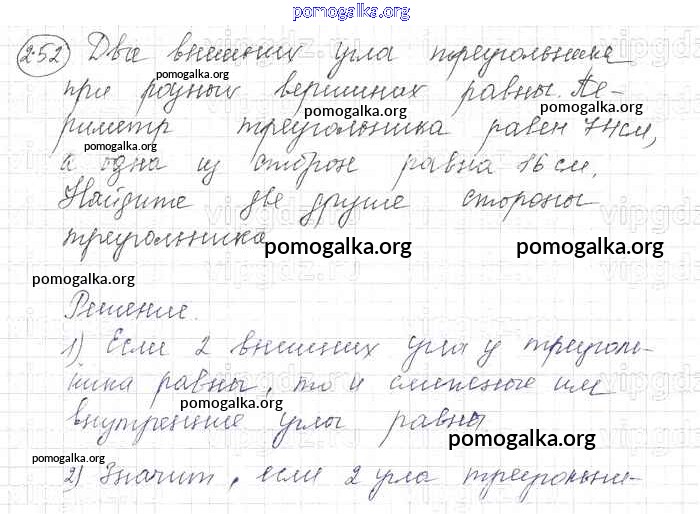 pomogalka.org
252 Два внешних угла треугольника
pomogalka.org
при разных вершинах равны. Пе-
pomogalka.org pomogalka.org
риметр треугольника равен 74см,
pomogalka.org
а одна из сторон равна 16 см.
Найдите две другие стороны
треугольника
pomogalka.org pomogalka.org
pomogalka.org
Решение.
1) Если 2 внешних угла у треуголь-
ника равны, то и смежные им
pomogalka.org
внутренние углы равны
pomogalka.org
pomogalka.org
2) Значит, если 2 угла треугольни-
pomogalka.org pomogalka.org